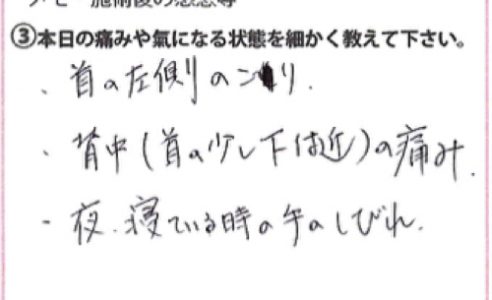 メモ・施術後の感想等
③本日の痛みや氣になる状態を細かく教えて下さい。
、首の左側のコリ.
・背中(首の少し下付近)の痛み.
・夜、寝ている時の手のしびれ.